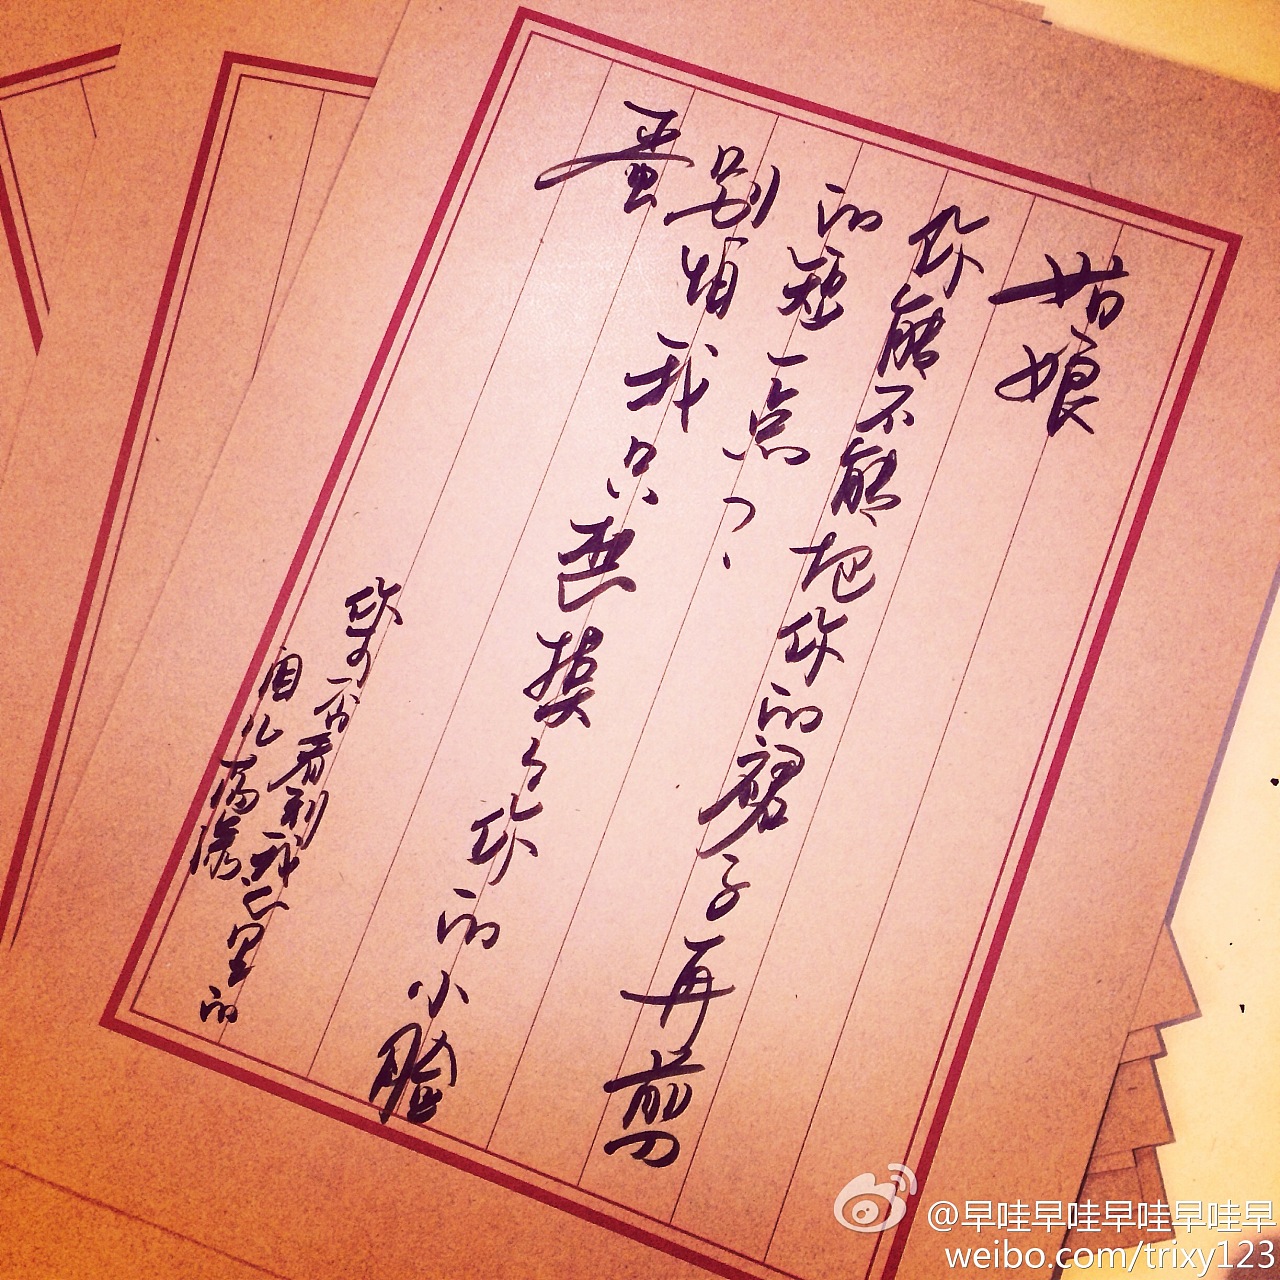 姑娘
你能不能把你的裙子再剪
的短一点？
别烦我只要摸々你的小脸
蛋
你可否看到我心里的
荡漾
@早哇早哇早哇早哇早
weibo.com/trixy123